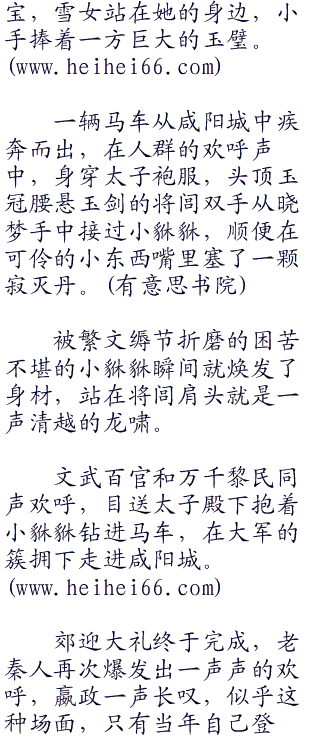 宝，雪女站在她的身边，小
手捧着一方巨大的玉璧。
(www.heihei66.com)
一辆马车从咸阳城中疾
奔而出，在人群的欢呼声
中，身穿太子袍服，头顶玉
冠腰悬玉剑的将闾双手从晓
梦手中接过小貅貅，顺便在
可伶的小东西嘴里塞了一颗
寂灭丹。(有意思书院)
被繁文缛节折磨的困苦
不堪的小貅貅瞬间就焕发了
身材，站在将闾肩头就是一
声清越的龙啸。
文武百官和万千黎民同
声欢呼，目送太子殿下抱着
小貅貅钻进马车，在大军的
簇拥下走进咸阳城。
(www.heihei66.com)
郊迎大礼终于完成，老
秦人再次爆发出一声声的欢
呼，嬴政一声长叹，似乎这
种场面，只有当年自己登